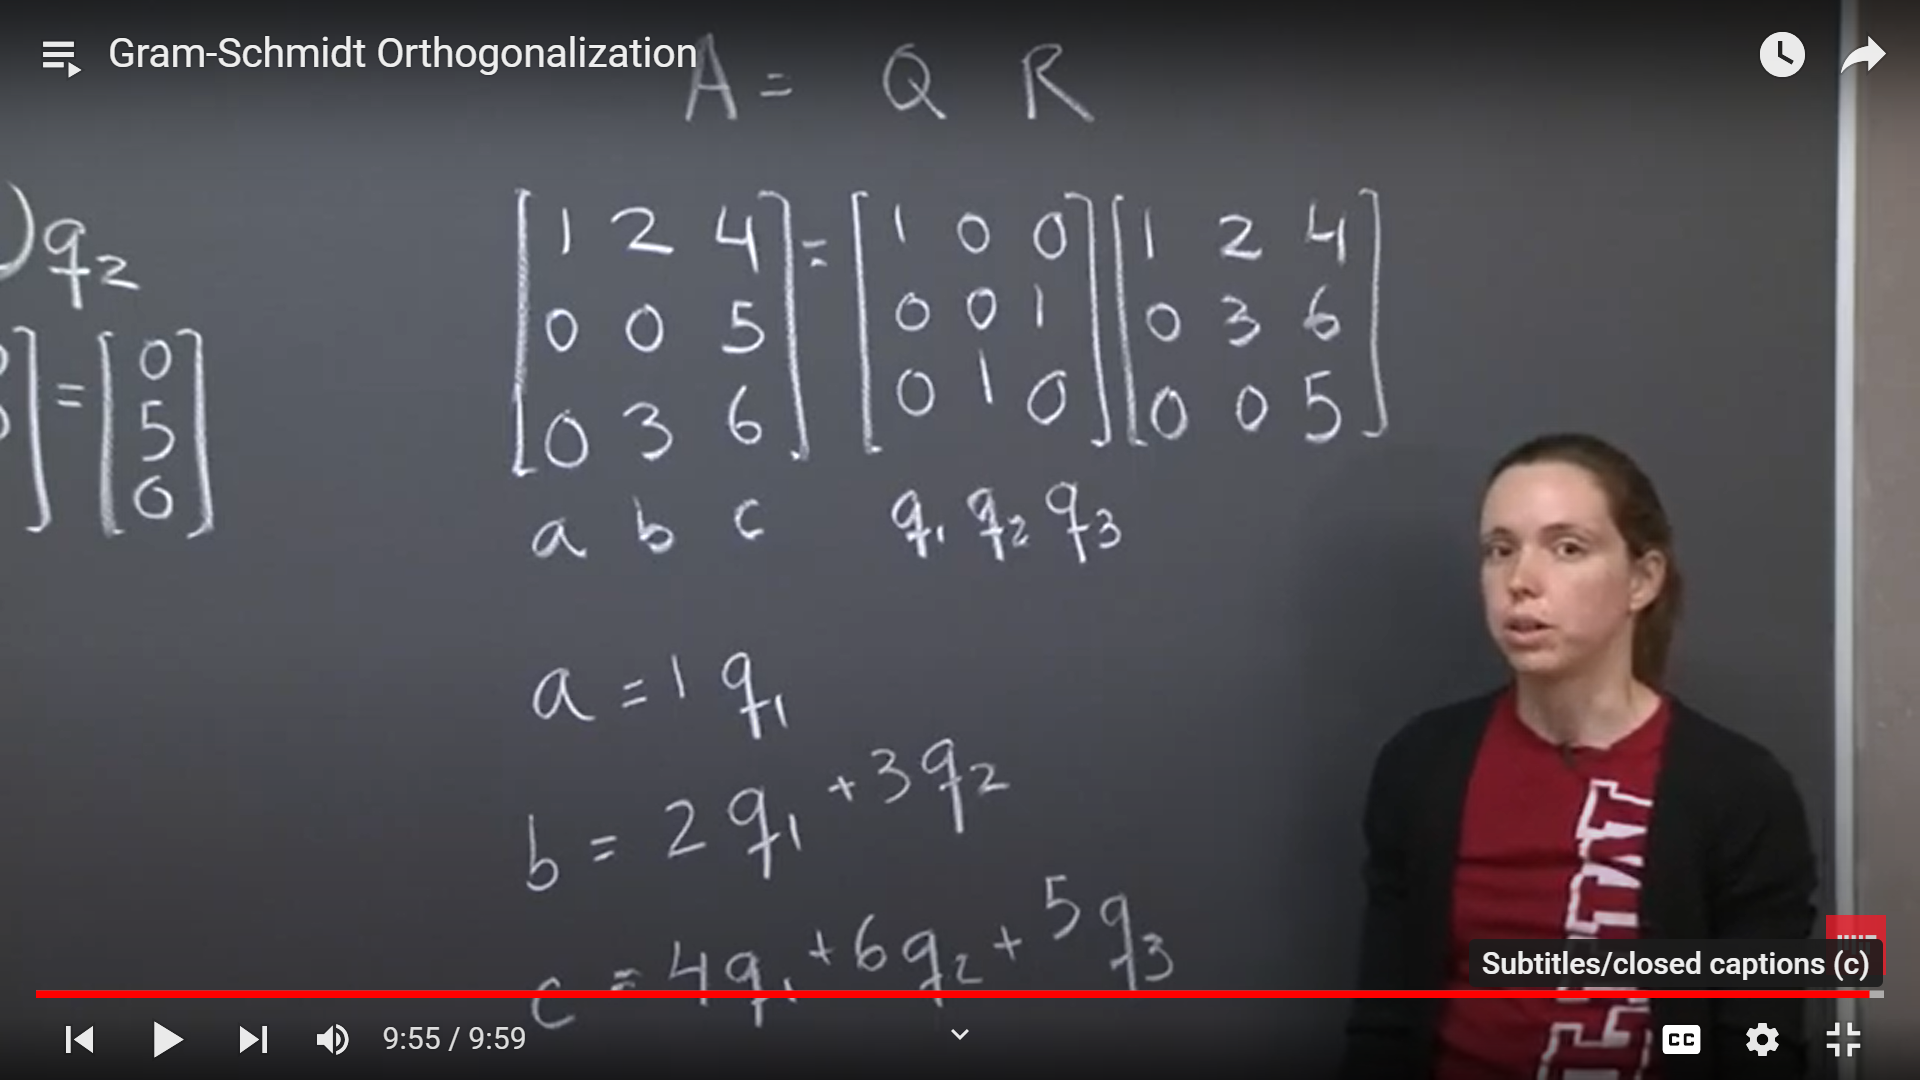 Gram-Schmidt Orthogonalization
A = Q R
) q2
[1 2 4] = [1 0 0] [1 2 4]
[0 0 5] [0 0 1] [0 3 6]
[0 3 6] [0 1 0] [0 0 5]
] = [0
5
0]
a b c q1 q2 q3
a = 1 q1
b = 2 q1 + 3 q2
c = 4 q1 + 6 q2 + 5 q3
Subtitles/closed captions (c)
9:55 / 9:59
CC